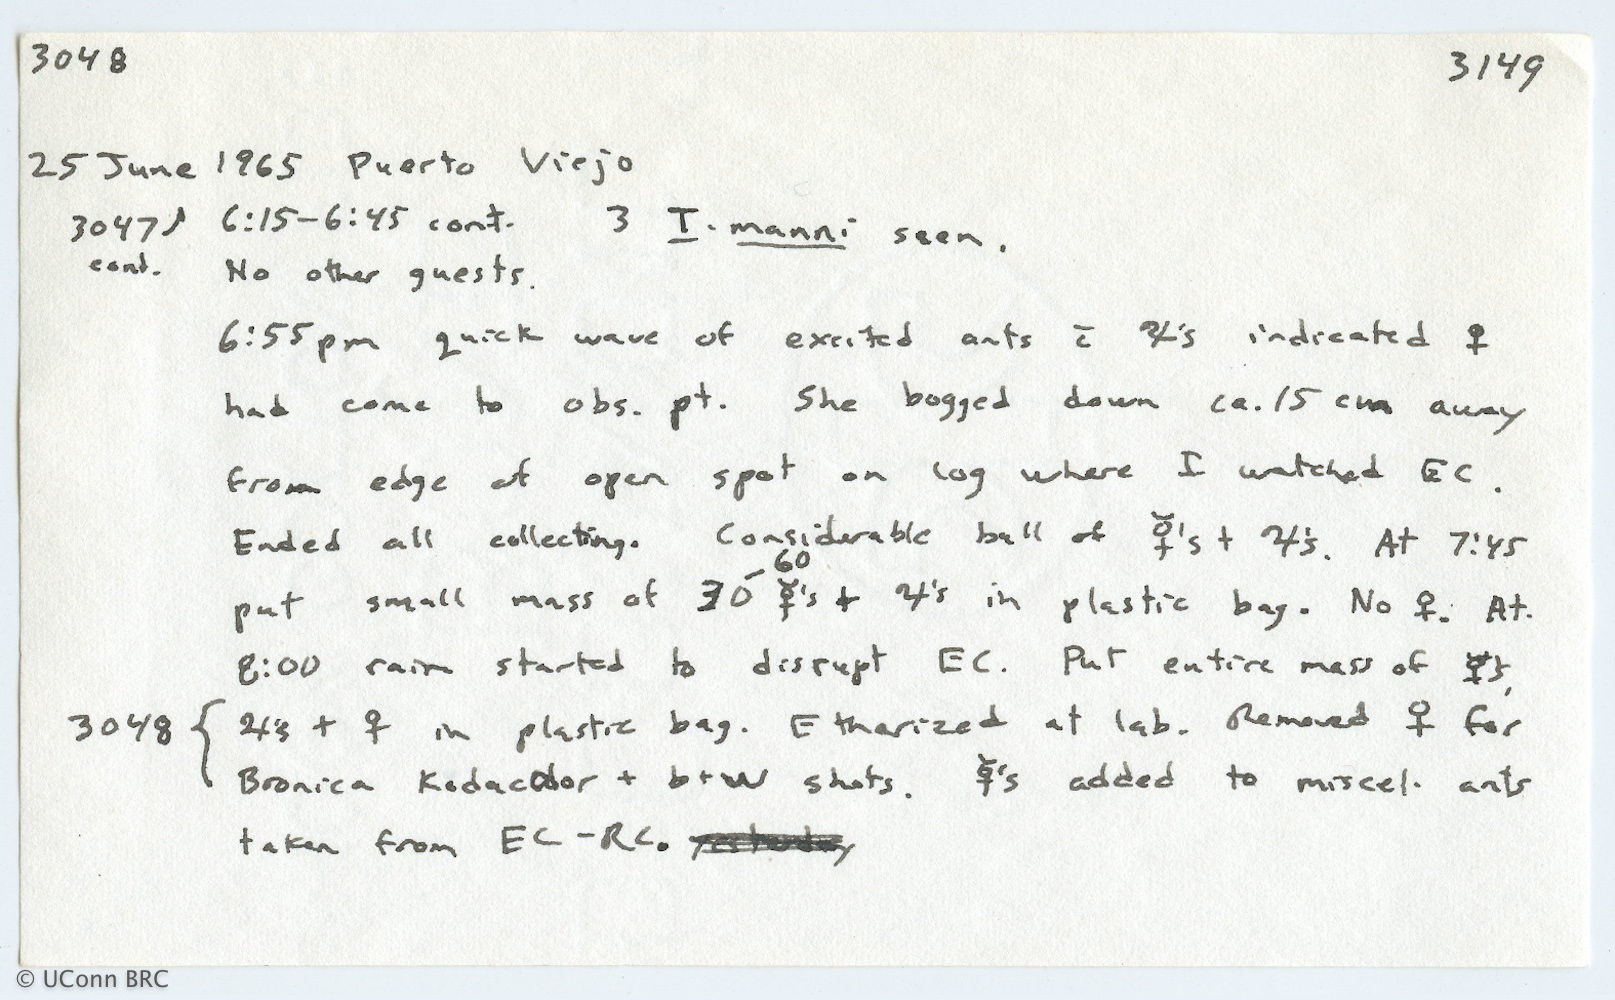 3048 3149
25 June 1965 Puerto Viejo
3047♪ 6:15-6:45 cont. 3 I. manni seen.
cont. No other guests.
6:55pm quick wave of excited ants c̄ ♃'s indicated ♀
had come to obs. pt. She bogged down ca. 15 cm away
from edge of open spot on log where I watched EC.
Ended all collecting. Considerable ball of ☿'s + ♃'s. At 7:45
60
put small mass of 30- ☿'s + ♃'s in plastic bag. No ♀. At
8:00 rain started to disrupt EC. Put entire mass of ☿'s,
3048 { ♃'s + ♀ in plastic bag. Etharized at lab. Removed ♀ for
Bronica Kodacolor + b+W shots. ☿'s added to miscel. ants
taken from EC-RC. yesterday
© UConn BRC